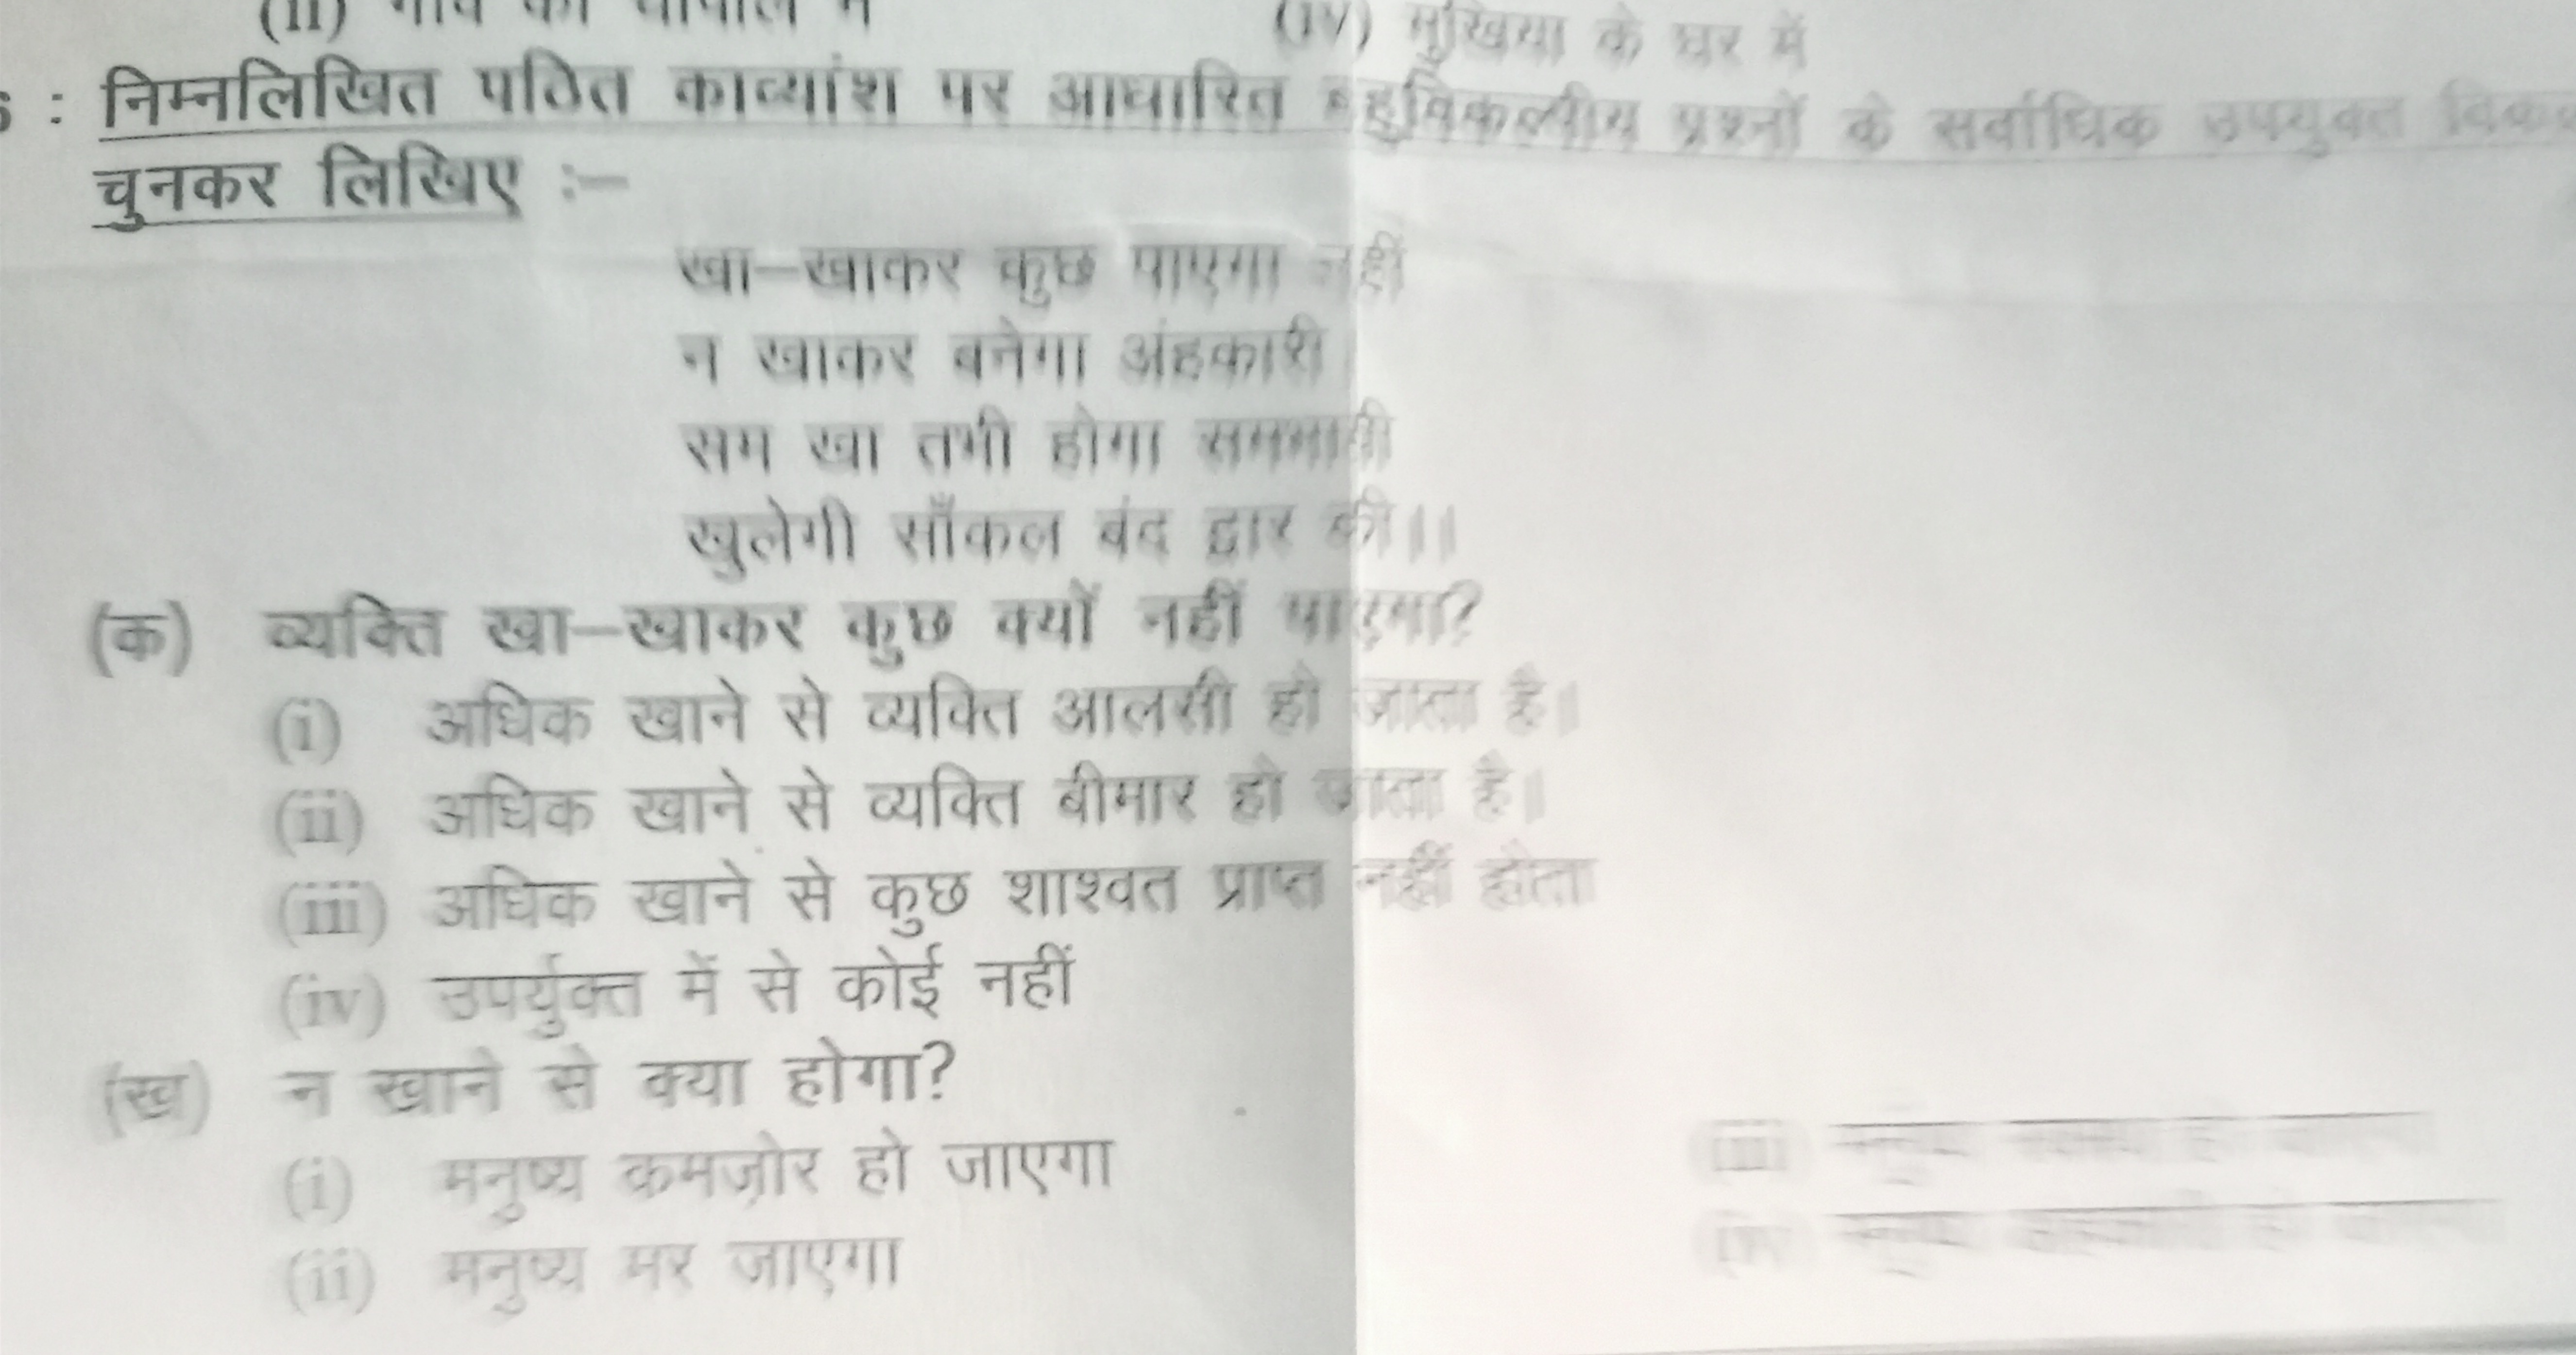 (ii) गाँव की चौपाल में (iv) मुखिया के घर में
: निम्नलिखित पठित काव्यांश पर आधारित बहुविकल्पीय प्रश्नों के सर्वाधिक उपयुक्त
चुनकर लिखिए :–
खा–खाकर कुछ पाएगा नहीं
न खाकर बनेगा अंहकारी
सम खा तभी होगा समभावी
खुलेगी साँकल बंद द्वार की।।
(क) व्यक्ति खा–खाकर कुछ क्यों नहीं पाएगा?
(i) अधिक खाने से व्यक्ति आलसी हो जाता है।
(ii) अधिक खाने से व्यक्ति बीमार हो जाता है।
(iii) अधिक खाने से कुछ शाश्वत प्राप्त नहीं होता
(iv) उपर्युक्त में से कोई नहीं
(ख) न खाने से क्या होगा?
(i) मनुष्य कमज़ोर हो जाएगा (iii) मनुष्य
(ii) मनुष्य मर जाएगा (iv) मनुष्य